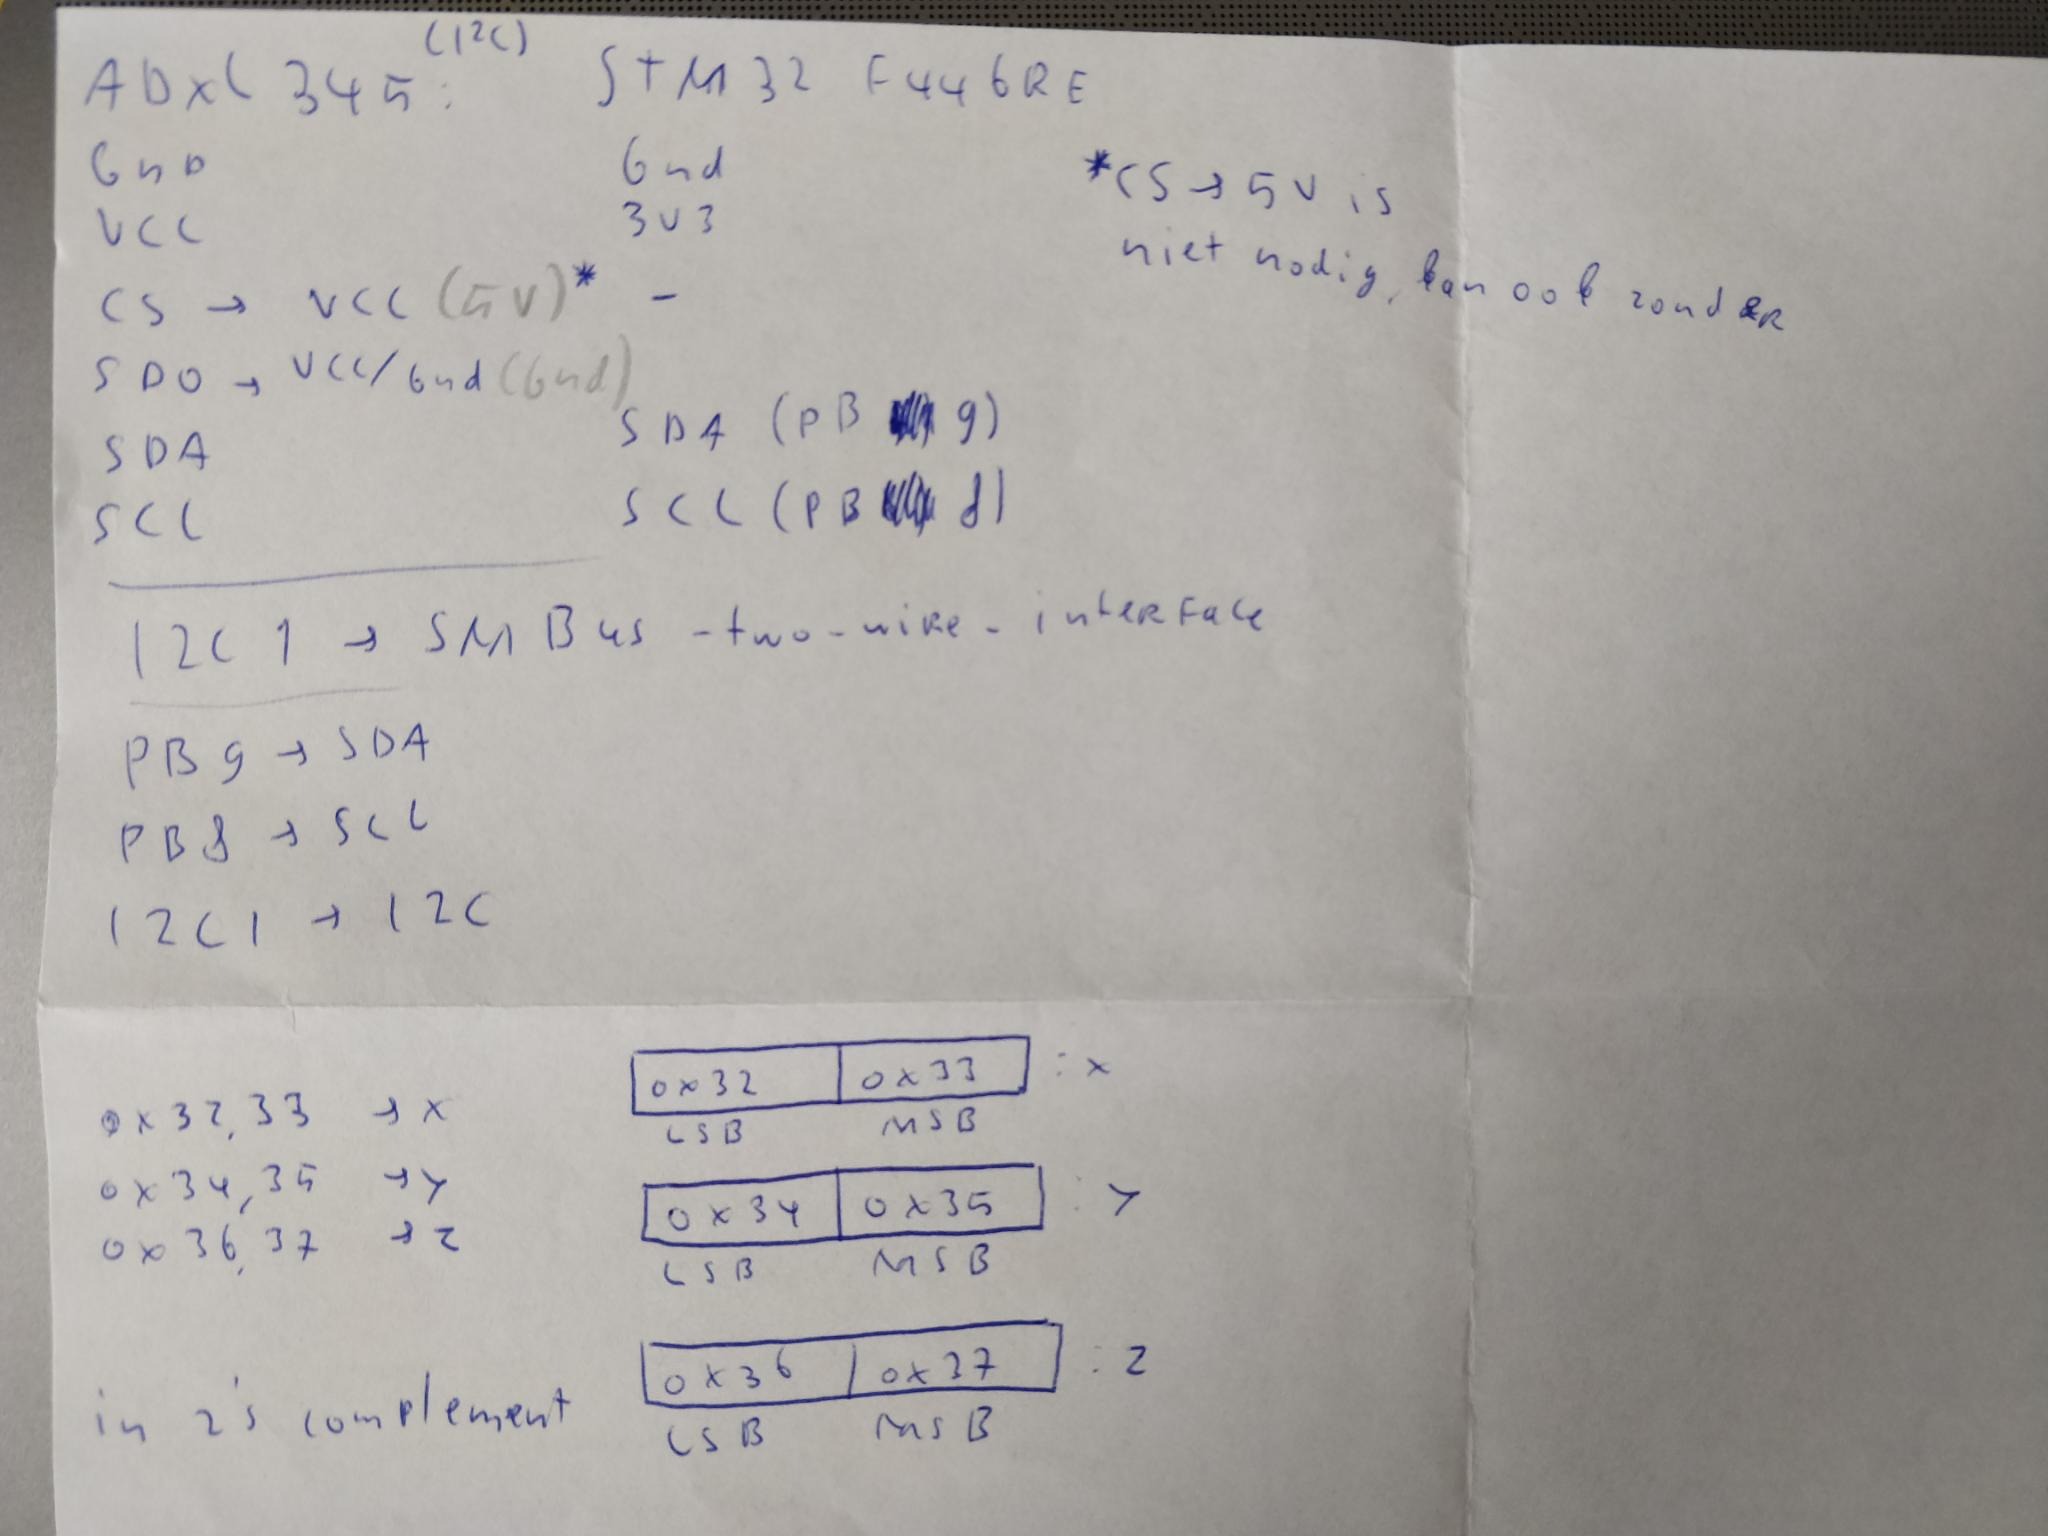 ADXL 345: (I2C) STM32 F446RE
GND Gnd
VCC 3V3
CS → VCC (5V)* -
*CS → 5V is
niet nodig, kan ook zonder
SDO → VCC/Gnd (Gnd)
SDA SDA (PB 9)
SCL SCL (PB 8)
I2C1 → SMBus-two-wire-interface
PB9 → SDA
PB8 → SCL
I2C1 → I2C
0x32,33 → x
0x34,35 → y
0x36,37 → z
in 2's complement
0x32 0x33 : x
LSB MSB
0x34 0x35 : y
LSB MSB
0x36 0x37 : z
LSB MSB